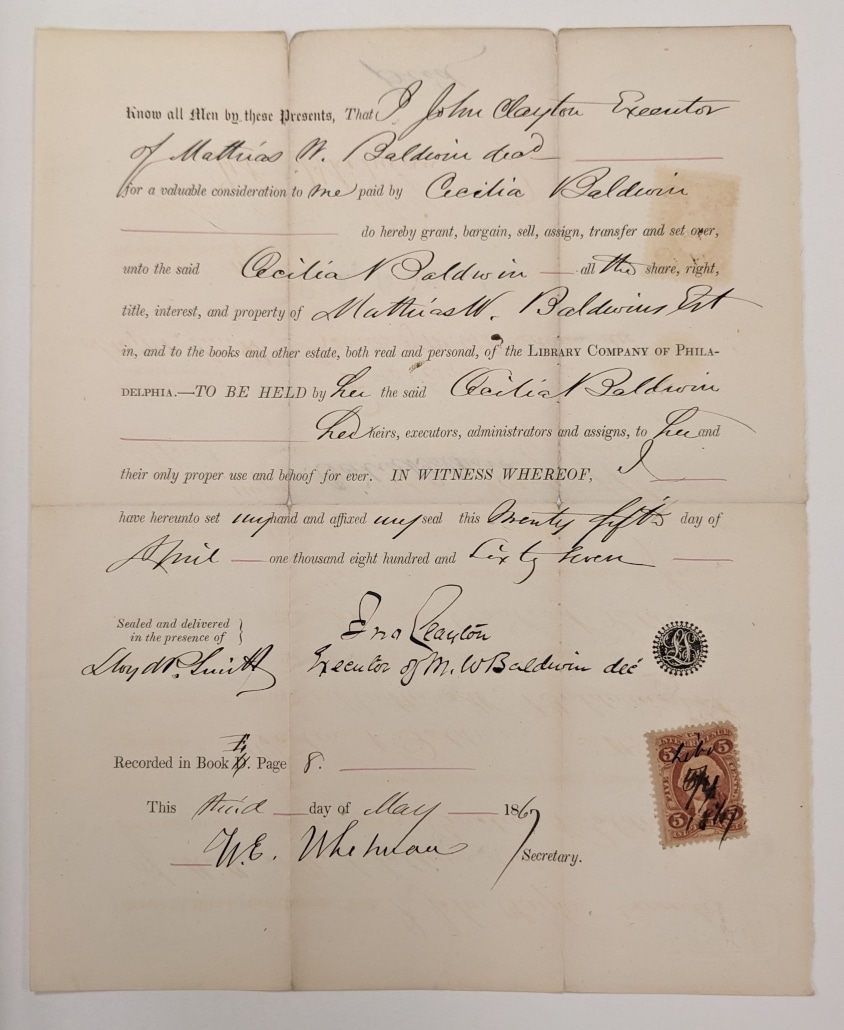 Know all Men by these Presents, That I John Clayton Executor
of Matthias W. Baldwin decd
for a valuable consideration to me paid by Cecilia Baldwin
do hereby grant, bargain, sell, assign, transfer and set over,
unto the said Cecilia Baldwin all the share, right,
title, interest, and property of Matthias W. Baldwins Est
in, and to the books and other estate, both real and personal, of the LIBRARY COMPANY OF PHILA-
DELPHIA.—TO BE HELD by her the said Cecilia Baldwin
her heirs, executors, administrators and assigns, to her and
their only proper use and behoof for ever. IN WITNESS WHEREOF, I
have hereunto set my hand and affixed my seal this Twenty fifth day of
April one thousand eight hundred and Sixty seven
Sealed and delivered
in the presence of
Jno Clayton
Lloyd P. Smith Executor of M. W Baldwin dec
Recorded in Book E. Page 8.
This third day of May 1867
W. E. Whitman Secretary.
5 5
FIVE CENTS
5 5